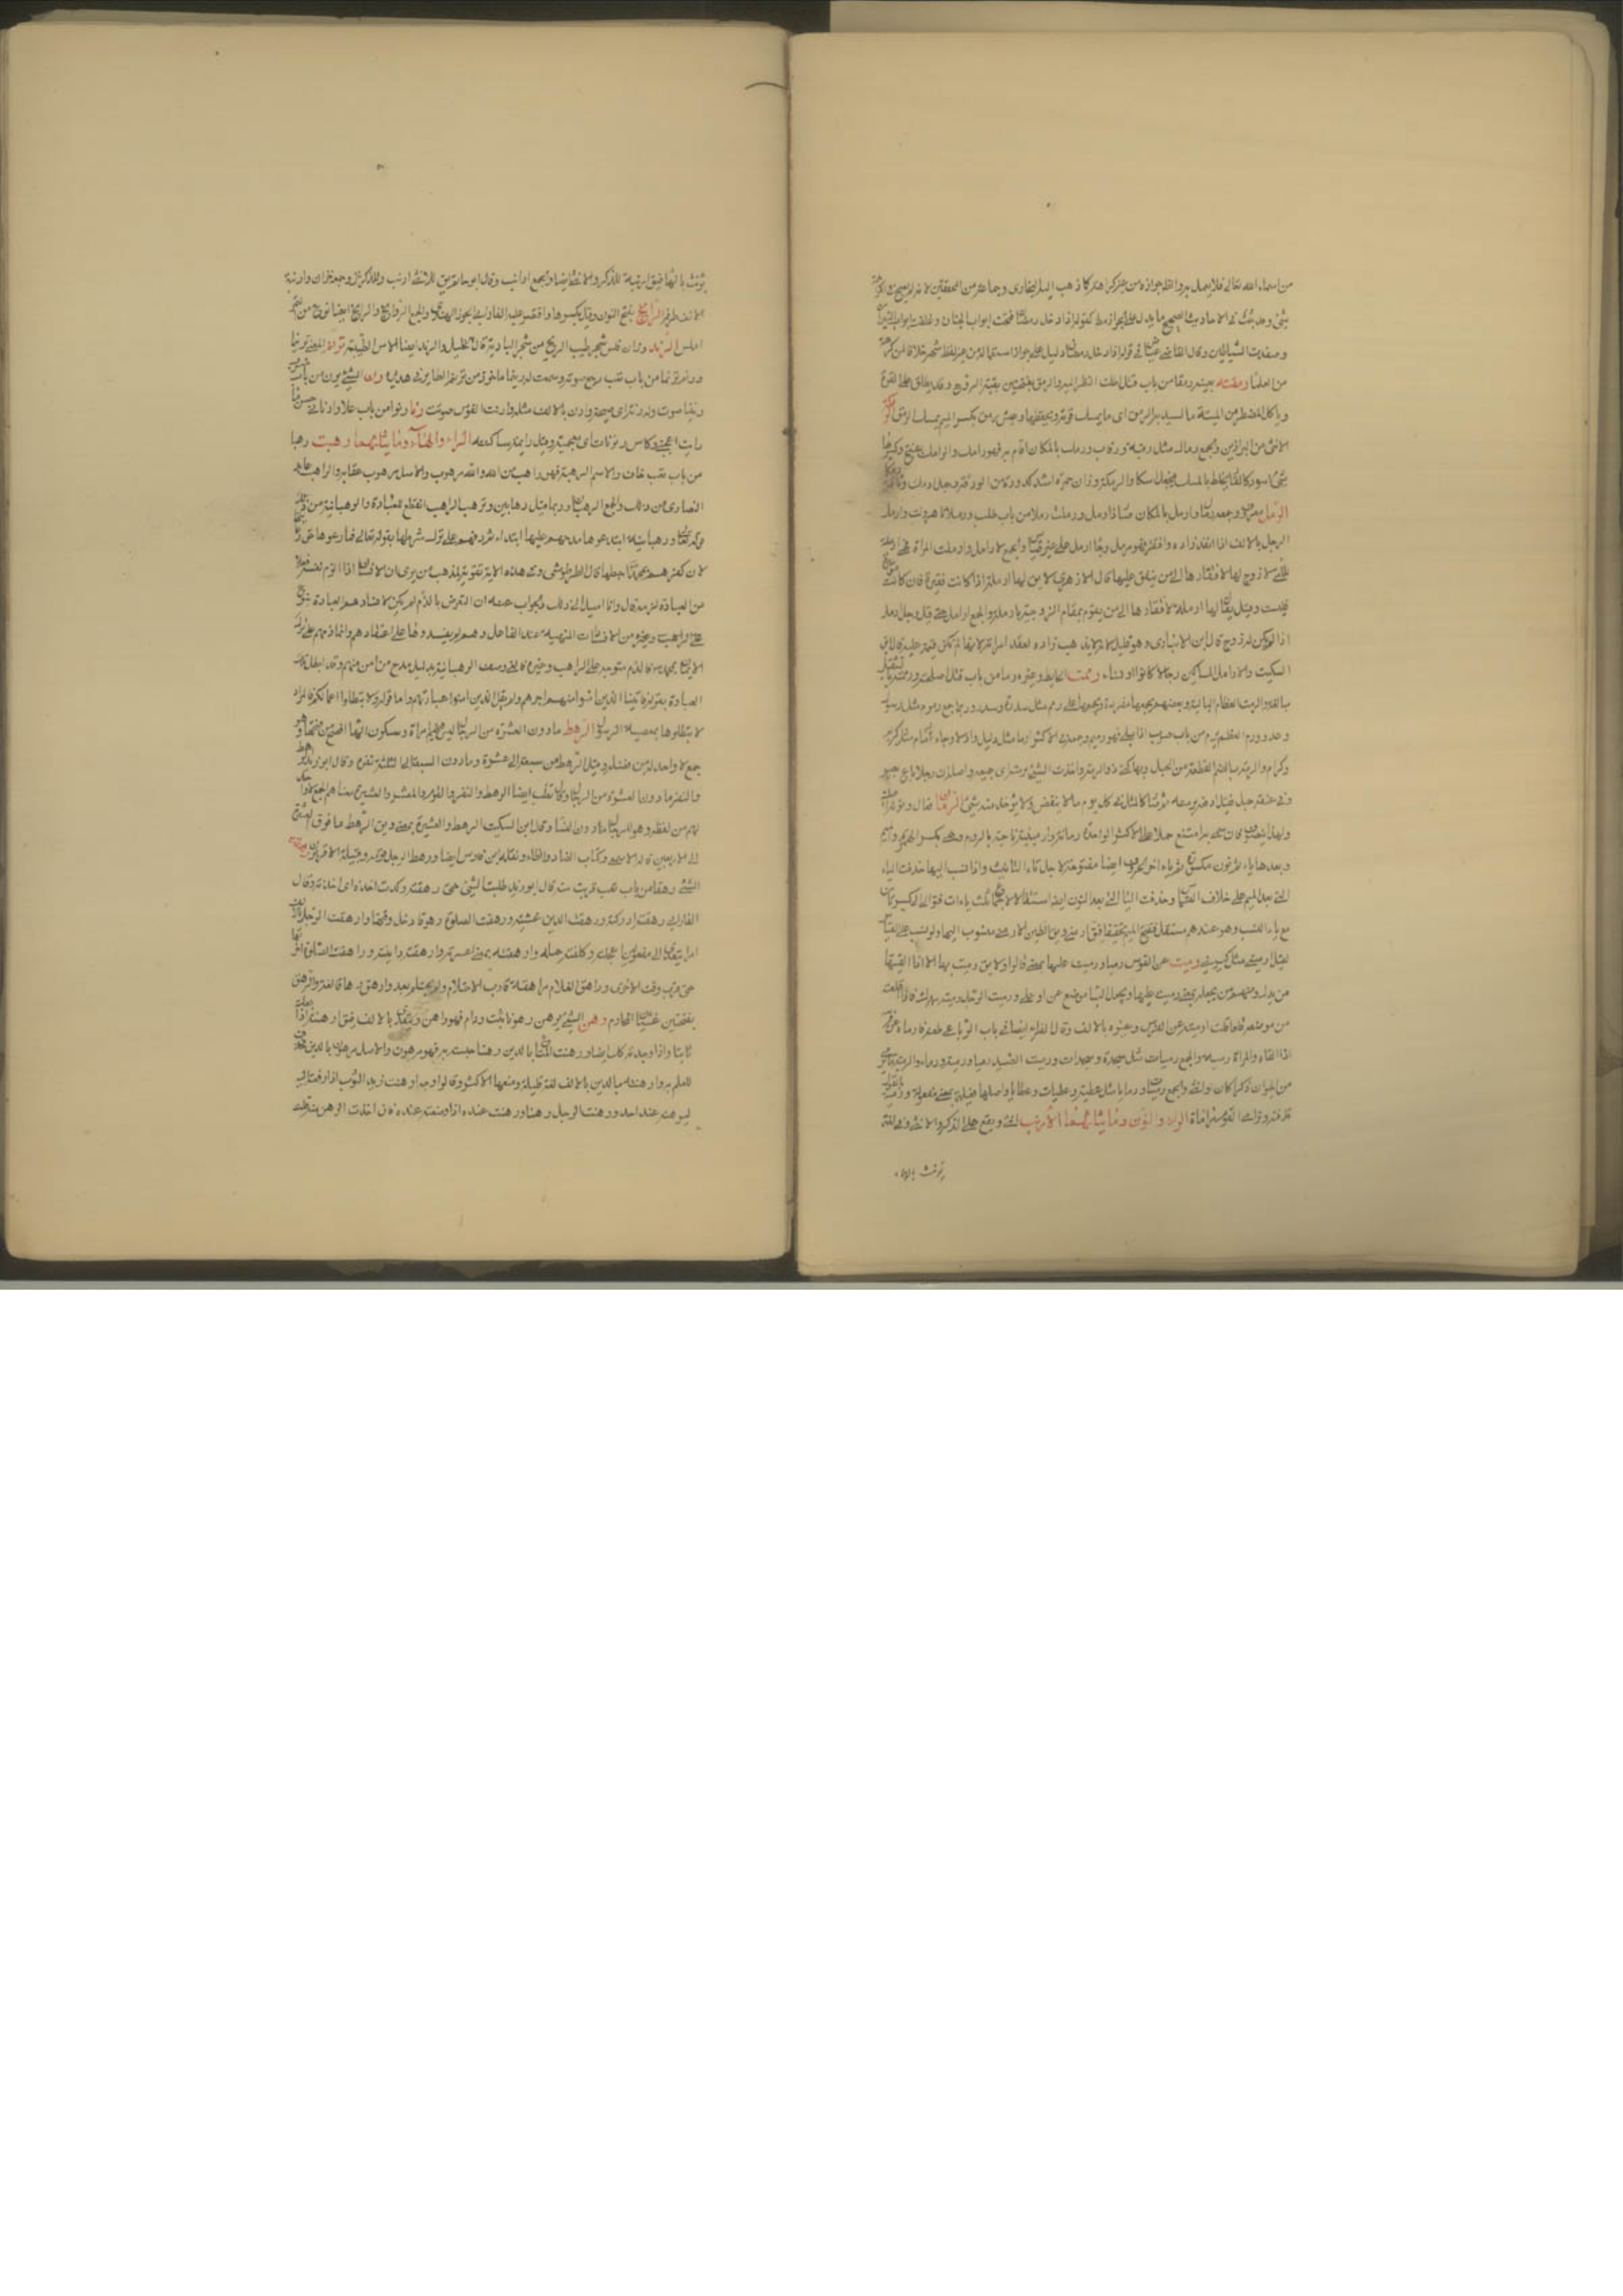 من اسماء الله تعالى فلا يعمل به والظاهر جوازه من غير كراهة كما ذهب اليه البخارى وجماعة من المحققين لانه لم يصح فى الكراهة
شئ وقد ثبت فى الاحاديث الصحيحة ما يدل على الجواز مطلقا كقوله اذا دخل رمضان فتحت ابواب الجنان وغلقت ابواب النيران
وصفدت الشياطين وقال القاضى عياض فى قوله اذا دخل رمضان دليل على جواز استعماله من غير لفظ شهر خلافا لمن كرهه
من العلماء رمقته بعينه رمقا من باب قتل اطلت النظر اليه والرمق بفتحتين بقية الروح وقد يطلق على القوة
وياكل المضطر من الميتة ما يسد به الرمق اى ما يمسك قوته ويحفظها وعيش رمق بكسر الميم يمسك الرمق الرمكة
الانثى من البراذين والجمع رماك مثل رقبة ورقاب ورمك بالمكان اقام به فهو رامك والرامك بفتح وكسرها
شئ اسود كالقار يخلط بالمسك فيجعل سكا والرمكة وزان حمرة اشد كدورة من الورقة وجمل ارمك وناقة رمكاء
الرمل معروف وجمعه رمال وارمل بالمكان صار ذا رمل ورملت رملا من باب طلب ورملانا هرولت وارمل
الرجل بالالف اذا نفد زاده وافتقر فهو مرمل وجاء ارمل على غير قياس والجمع الارامل وارملت المراة فهى ارملة
للتى لا زوج لها لافتقارها الى من ينفق عليها قال الازهرى لا يقال لها ارملة الا اذا كانت فقيرة فان كانت موسرة
فليست وقيل يقال لها ارملة لافتقارها الى من يقوم بمقام الزوجية بارملة والجمع ارامل حتى قيل رجل ارمل
اذا لم يكن له زوج قال ابن الانبارى وهو قليل لانه لا يذهب زاده بفقد امراته لانها لم تكن قيمة عليه قال ابن
السكيت والارامل المساكين رجالا كانوا او نساء رممت الحايط وغيره رما من باب قتل اصلحته ورممته بالتثقيل
مبالغة والرمة العظام البالية وبعضهم يجمعها مفردة ويجمعها على رمم مثل سدرة وسدر وربما جمع رموم مثل
وحد ورم العظم يرم من باب ضرب اذا بلى فهو رميم وجمعه فى الاكثر ارماء مثل دليل وادلاء وجاء رمام مثل كريم
وكرام والرمة بالضم القطعة من الحبل وبها كنى ذو الرمة واخذت الشئ برمته اى جميعه واصله ان رجلا باع بعيرا
وفى عنقه حبل فقيل ادفعه برمته ثم صار كالمثل فى كل ما لا ينقص ولا يؤخذ منه شئ الرمان فعال ونونه اصلية
ولهذا ينصرف فان سمى به امتنع حملا على الاكثر الواحدة رمانة وارمينية ناحية بالروم وهى بكسر الهمزة والميم
وبعدها ياء ثم نون مكسورة ثم ياء اخر الحروف ايضا مفتوحة لاجل هاء التانيث واذا نسب اليها حذفت الياء
التى بعد الميم على خلاف القياس وحذفت الياء التى بعد النون ايضا استثقالا لاجتماع ثلاث ياءات فتوالى الكسرتان
مع ياء النسب وهو عندهم مستثقل فتفتح الميم تخفيفا فيقال ارمنى ويقال الطين الارمنى منسوب اليها ولو نسب على القياس
لقيل ارمينى مثل كبريتى رميت عن القوس رميا ورميت عليها بمعنى قالوا ولا يقال رميت بها الا اذا القيتها
من يدك ومنهم من يجعله بمعنى رميت عليها ويجعل الباء موضع عن او على ورميت الرجل رميته بيدك فاذا قلعته
من موضعه قلعا قلت ارميته عن الفرس وغيره بالالف وقال الفارابى ايضا فى باب الرباعى طعنه فارماه عن فرسه
اذا القاه والمرة رمية والجمع رميات مثل سجدة وسجدات ورميت الصيد رميا ورمية ورماء والرمية ما يرمى
من الحيوان ذكرا كان او انثى والجمع رميات ورمايا مثل عطية وعطيات وعطايا واصلها فعيلة بمعنى مفعولة ورميته بالقول
قذفته وترامى القوم مراماة الراء والنون وما يثلثهما الارنب انثى ويقع على الذكر والانثى وفى لغة
يؤنث بالهاء
يؤنث بالهاء فيقال ارنبة للذكر والانثى ايضا والجمع ارانب وقال ابو حاتم يقال للانثى ارنب وللذكر خزز وجمعه خزان وارنبة
الانف طرفه الرانج بفتح النون وقيل بكسرها واقتصر عليه الفارابى الجوز الهندى والجمع الروانج والرانج ايضا نوع من التمر
املس الرند وزان فلس شجر طيب الريح من شجر البادية قال الخليل والرند ايضا الاس الطيب ترنم المغنى ترنما
ورنم يرنم من باب تعب رجع صوته وسمعت له رنيما ماخوذ من ترنم الطاير فى هديره رن الشئ يرن من باب ضرب
رنينا صوت وله رنة اى صيحة وارن بالالف مثله وارنت القوس صوتت رنا رنوا من باب علا وارنانى حسن ما
رايت اعجبنى وكاس رنوناة اى معجبة وقيل دايمة ساكنة الراء والهاء وما يثلثهما رهب رهبا
من باب تعب خاف والاسم الرهبة فهو راهب من الله والله مرهوب والاصل مرهوب عقابه والراهب عابد
النصارى من ذلك والجمع الرهبان وربما قيل رهابين وترهب الراهب انقطع للعبادة والرهبانية من ذلك
قال تعالى ورهبانية ابتدعوها مدحهم عليها ابتداء ثم ذمهم على ترك شرطها بقوله تعالى فما رعوها حق رعايتها
لان كفرهم بمحمد احبطها قال الطرطوشى وفى هذه الاية تقوية لمذهب من يرى ان الانسان اذا الزم نفسه فعلا
من العبادة لزمه قال وانا اميل الى ذلك والجواب عنه ان التعرض بالذم لم يكن لافسادهم العبادة
على الراهب وغيره من الافعال المنهية عنه الفاعل وهم لم يفسدوها على اعتقادهم وانما ذمهم على ترك
الايمان بمحمد فالذم متوجه على الراهب وغيره فالغى وصف الرهبانية بدليل مدح من امن منهم وقد ابطل تلك
العبادة بقوله فاتينا الذين امنوا منهم اجرهم ولم يقل الذين اتموا عبادتهم واما قوله ولا تبطلوا اعمالكم فالمراد
لا تبطلوها بمعصية الرسول الرهط ما دون العشرة من الرجال ليس فيهم امراة وسكون الهاء افصح من فتحها وهو
جمع لا واحد له من لفظه وقيل الرهط من سبعة الى عشرة وما دون السبعة الى الثلاثة نفر وقال ابو زيد الرهط
والنفر ما دون العشرة من الرجال وقال ثعلب ايضا الرهط والنفر والقوم والمعشر والعشيرة معناهم الجمع لا واحد
لهم من لفظهم وهو للرجال دون النساء وقال ابن السكيت الرهط والعشيرة بمعنى ويقال الرهط ما فوق العشرة
الى الاربعين قاله الاصمعى فى كتاب الضاد والظاء ونقله ابن فارس ايضا ورهط الرجل قومه وقبيلته الاقربون رهقت
الشئ رهقا من باب تعب قربت منه قال ابو زيد طلبت الشئ حتى رهقته وكدت اخذه او اخذته وقال
الفارابى رهقته ادركته ورهقه الدين غشيه ورهقت الصلوة رهوقا دخل وقتها وارهقت الرجل بالالف
امرا يتعدى الى مفعولين اعجلته وكلفته حمله وارهقته بمعنى اعسرته وارهقته دانيته وارهقت الصلوة اخرتها
حتى قرب وقت الاخرى وراهق الغلام مراهقة قارب الاحتلام ولم يحتلم بعد وارهق رهاقا لغة والرهق
بفتحتين غشيان المحارم رهن الشئ يرهن رهونا ثبت ودام فهو راهن ويتعدى بالالف فيقال ارهنته اذا جعلته
ثابتا واذا وجدته كذلك ايضا ورهنت المتاع بالدين رهنا حبسته به فهو مرهون والاصل مرهون بالدين فحذف
للعلم به وارهنته بالدين بالالف لغة قليلة ومنعها الاكثر وقالوا وجه ارهنت زيدا الثوب اذا دفعته اليه
ليرهنه عند احد ورهنت الرجل رهنا ورهنت عنده اذا وضعته عنده فان اخذت الرهن منه قلت